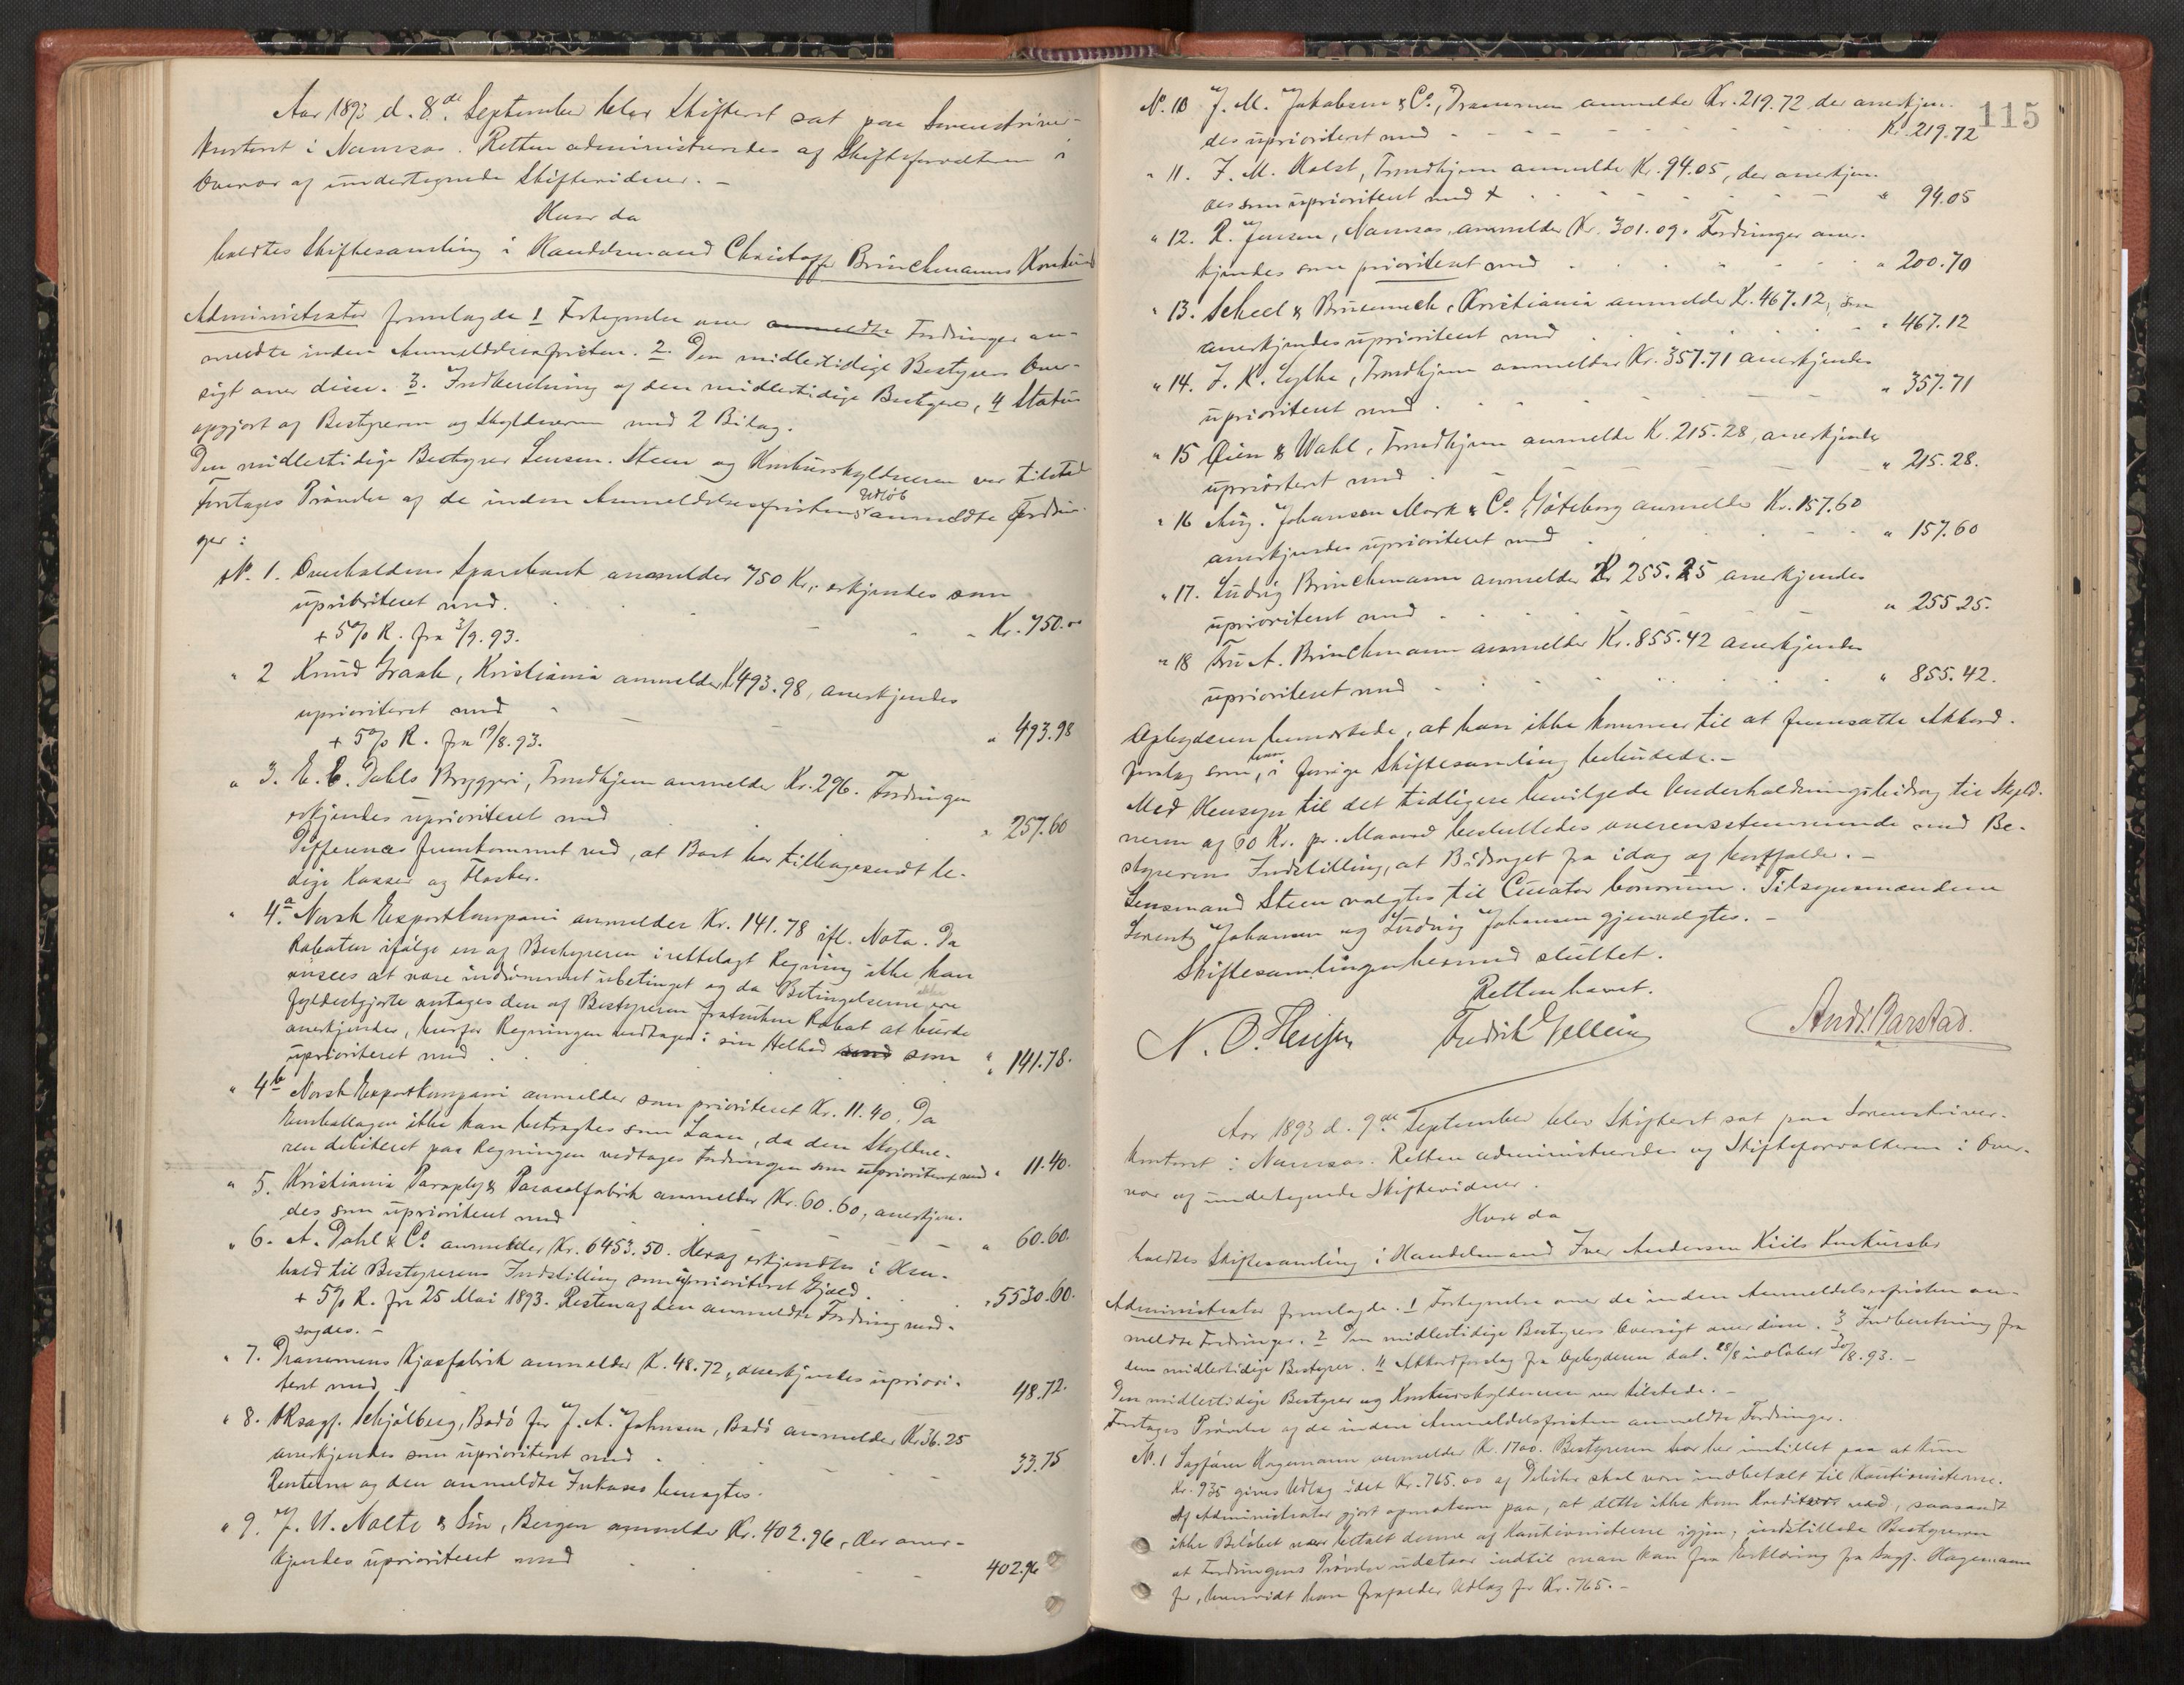 Aar 1893 d. 8de September blev Skifteret sat paa Sorenskriver-
kontoret i Namsos. Retten administreredes af Skifteforvalteren i
Overvær af undertegnede Skiftevidner. –
Hvor da
holdtes Skiftesamling i Handelsmand Christoffer Brinchmanns Konkursbo
Administrator fremlagde 1 Fortegnelse over anmeldte Fordringer an-
meldte inden Anmeldelsesfristen. 2. Den midlertidige Bestyrers Over-
sigt over disse. 3. Indberetning af den midlertidige Bestyrer, 4 Status
opgjort af Bestyreren og Skyldneren med 2 Bilag.
Den midlertidige Bestyrer Lensm. Steen og Konkursskyldneren var tilstede
Foretages Prøvelse af de inden Anmeldelsesfristens Udløb anmeldte Fordrin-
ger:
No. 1. Overhaldens Sparebank anmelder 750 Kr., erkjendes som
uprioriteret med. Kr. 750.00
+ 5% R. fra 3/9. 93.
" 2 Knud Graah, Kristiania anmelder K 493.98, anerkjendes
uprioriteret med " 493.98
+ 5% R. fra 19/8. 93.
" 3. E. C. Dahls Bryggeri, Trondhjem anmelder Kr. 296. Fordringen
erkjendes uprioriteret med " 257.60
Differencen fremkommet ved, at Boet har tilbagesendt le-
dige Kasser og Flasker.
" 4.a Norsk Exportkompani anmelder Kr. 141.78 ifl. Nota. Da
Rabatten ifølge en af Bestyreren irettelagt Regning ikke kan
ansees at være indrømmet ubetinget og da Betingelserne ikke ere
fyldestgjorte antages den af Bestyreren fratrukne Rabat at burde
anerkjendes, hvorfor Regningen medtages i sin Helhed med som
uprioriteret med " 141.78.
" 4b Norsk Exportkompani anmelder som prioriteret Kr. 11.40. Da
Emballagen ikke kan betragtes som Laan, da den Skyldne-
ren debiteret paa Regningen vedtages Fordringen som uprioriteret med " 11.40.
" 5. Kristiania Paraply & Parasolfabrik anmelder Kr. 60.60, anerkjen-
des som uprioriteret med " 60.60.
" 6. A. Dahl & Co. anmelder Kr. 6453.50. Heraf erkjendtes i Hen-
hold til Bestyrerens Indstilling som uprioriteret Gjæld. " 5530.60.
+ 5% R. fra 25 Mai 1893. Resten af den anmeldte Fordring mod-
sagdes. –
" 7. Drammens Kjæxfabrik anmelder K. 48.72, anerkjendes upriori-
teret med 48.72.
" 8. ORsagf. Schjølberg, Bodø for J. A. Johnsen, Bodø anmelder Kr 36.25
anerkjendes som uprioriteret med 33.75
Renterne og den anmeldte Inkasso benægtes.
" 9. J. W. Nolte & Søn, Bergen anmelder Kr. 402.96, der aner-
kjendes uprioriteret med 402.96
115
No. 10 J. M. Jakobsen & Co., Drammen anmelder Kr. 219.72 der anerkjen-
des uprioriteret med Kr. 219.72
" 11. F. M. Holst, Trondhjem anmelder Kr. 94.05, der anerkjen-
des som uprioriteret med " 94.05
" 12. R. Jensen, Namsos, anmelder Kr. 301.09. Fordringer aner-
kjendes som prioriteret med " 200.70
" 13. Scheel & Kristiania anmelder K. 467.12, som
anerkjendes uprioriteret med " 467.12
" 14. J. K. Lykke, Trondhjem anmelder Kr. 357.71 anerkjendes
uprioriteret med " 357.71
" 15 Øien & Wahl, Trondhjem anmelder K. 215.28, anerkjendes
uprioriteret med " 215.28.
" 16 Aug. Johansen Mork & Co. Göteborg anmelder Kr. 157.60
anerkjendes uprioriteret med " 157.60
" 17. Ludvig Brinchmann anmelder Kr 255.25 anerkjendes
uprioriteret med " 255 25.
" 18 Fru A. Brinchmann anmelder Kr. 855.42 anerkjendes
uprioriteret med " 855.42.
Opbyderen bemærkede, at han ikke kommer til at fremsætte Akkord-
forslag som han i forrige Skiftesamling bebudede. –
Med Hensyn til det tidligere bevilgede Underholdningsbidrag til Skyld-
neren af 60 Kr. pr. Maaned besluttedes overensstemmende med Be-
styrerens Indstilling, at Bidraget fra idag af bortfalder. –
Lensmand Steen valgtes til Curator bonorum. Tilsynsmændene
Lorentz Johansen og Ludvig Johansen gjenvalgtes. –
Skiftesamlingen hermed sluttet.
Retten hævet.
Fredrik Gellein Ands. Barstad.
Aar 1893 d. 9de September blev Skifteret sat paa Sorenskriver-
kontoret i Namsos. Retten administreredes af Skifteforvalteren i Over-
vær af undertegnede Skiftevidner.
Hvor da
holdtes Skiftesamling i Handelsmand Iver Andersen Kiils Konkursbo
Administrator fremlagde. 1 Fortegnelse over de inden Anmeldelsesfristen an-
meldte Fordringer. 2 Den midlertidige Bestyrers Oversigt over disse. 3 Indberetning fra
den midlertidige Bestyrer. 4 Akkordforslag fra Opbyderen dat. 28/8 indløbet 30/8. 93. –
Den midlertidige Bestyrer og Konkursskyldneren var tilstede. –
Foretages Prøvelse af de inden Anmeldelsfristen anmeldte Fordringer.
No. 1 Sagfører Hagemann anmelder Kr. 1700. Bestyreren har her instillet paa at kun
Kr. 935 gives Udlæg idet Kr. 765.00 af Debitor skal være indbetalt til Kautionisterne.
Af Administrator gjort opmærksom paa, at dette ikke kom Kreditor ved, saasandt
ikke Beløbet var betalt denne af Kautionisterne igjen, indstillede Bestyreren
at Fordringens Prøvelse udstaar indtil man kan faa Erklæring fra Sagf. Hagemann
for, hvorvidt han frafalder Udlæg for Kr. 765. –